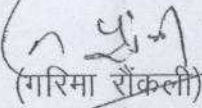 (गरिमा रौंकली)